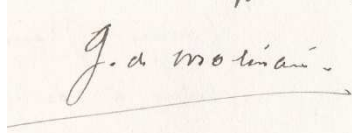 G. de Molinari.